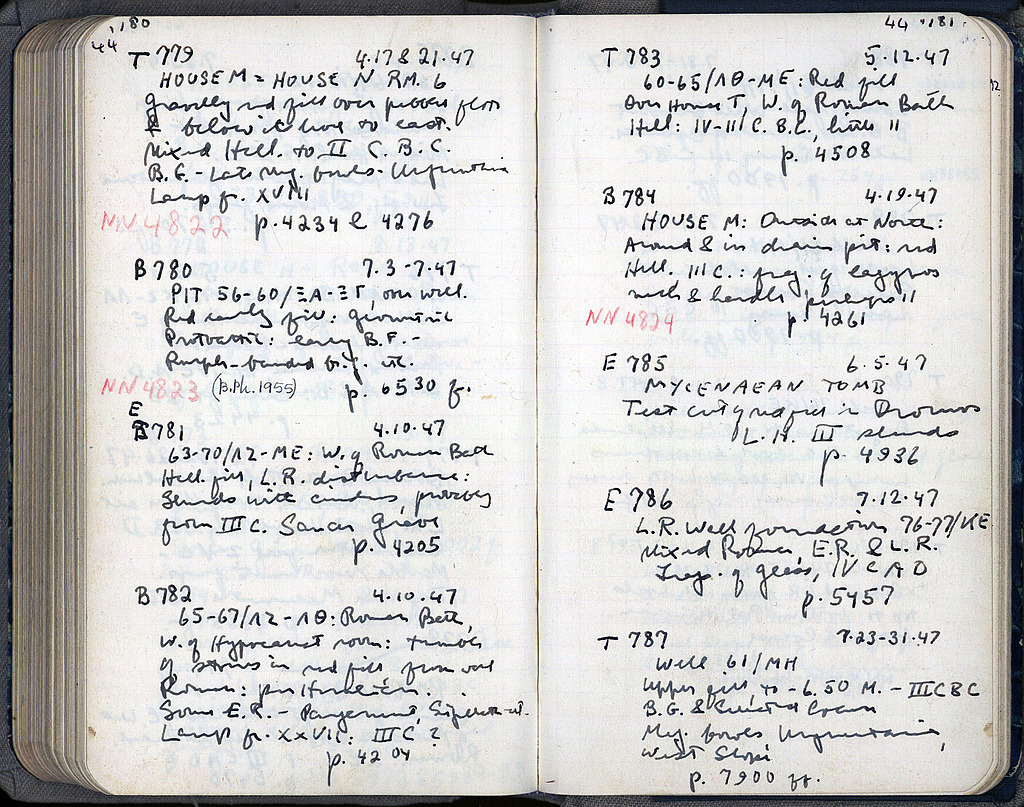 44 '180
T 779 4.17 & 21.47
HOUSE M = HOUSE N RM. 6
Gravelly red fill over pebble floor
& below it level to east.
Mixed Hell. to II C. B.C.
B.G. - Late Meg. bowls -
Lamp fr. XVIII
NN 4822 p. 4234 & 4276
B 780 7.3-7.47
PIT 56-60/ΞΑ-ΞΓ, over well.
Red sandy fill: Geometric
Protoattic: early B.F. -
Purple-banded b.g. etc.
NN 4823 (B.Ph. 1955) p. 6530 ff.
E
B 781 4.10.47
63-70/ΛΖ-ΜΕ: W. of Roman Bath
Hell. fill, L.R. disturbance:
Sherds with cinders, probably
from III C. Saucer Grave
p. 4205
B 782 4.10.47
65-67/ΛΖ-ΛΘ: Roman Bath,
W. of Hypocaust room: tumble
of stones in red fill from over
Roman: pre Herulian . . .
Some E.R. - Pergamene,
Lamp fr. XXVII: III C ?
p. 4204
44 '181
T 783 5.12.47
60-65/ΛΘ-ΜΕ: Red fill
Over House T, W. of Roman Bath
Hell: IV-II C. B.C., little II
p. 4508
B 784 4.19.47
HOUSE M: Outside at North:
Around & in drain pit: red
Hell. III C.: frag. of lagynos
neck & handle, perhaps II
NN 4824 p. 4261
E 785 6.5.47
MYCENAEAN TOMB
Test cutting in Dromos
L.H. III sherds
p. 4936
E 786 7.12.47
L.R. Wall foundations 76-77/ΚΕ
Mixed Roman, E.R. & L.R.
Frag. of glass, IV C A D
p. 5457
T 787 7.23-31.47
Well 61/ΜΗ
Upper fill, to -6.50 M. - III C BC
B.G. & Selected Coarse
Meg. bowls
West Slope
p. 7900 ff.